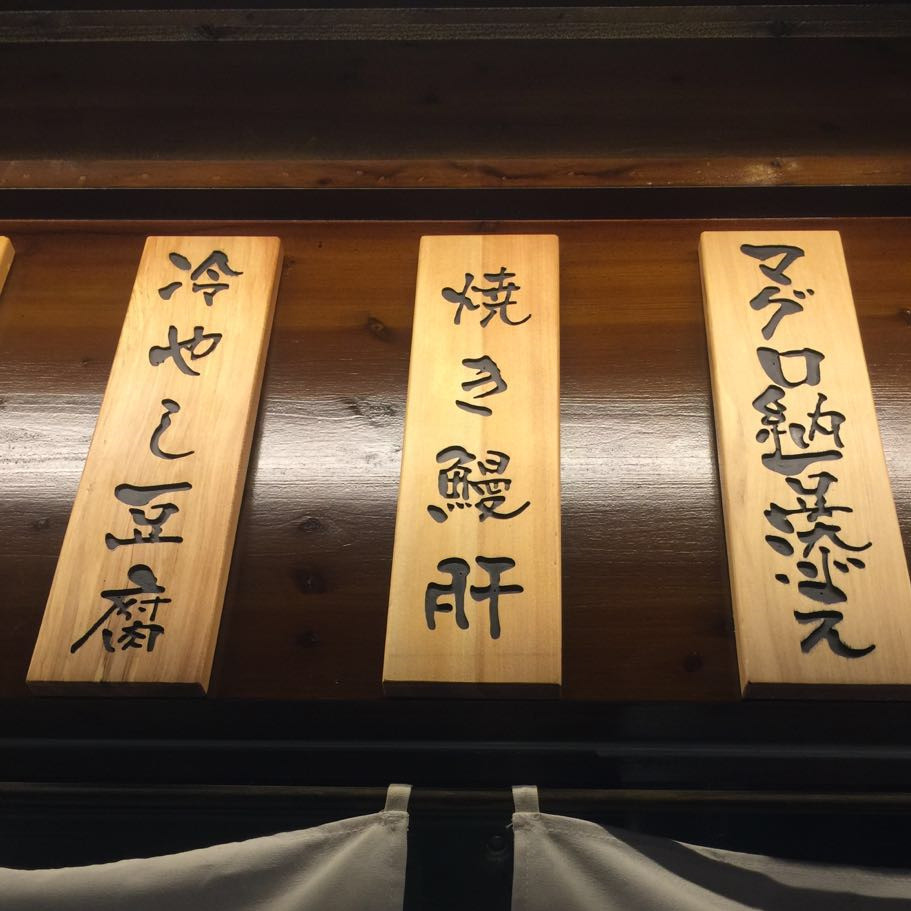 マグロ納
焼き鰻肝
冷やし豆腐